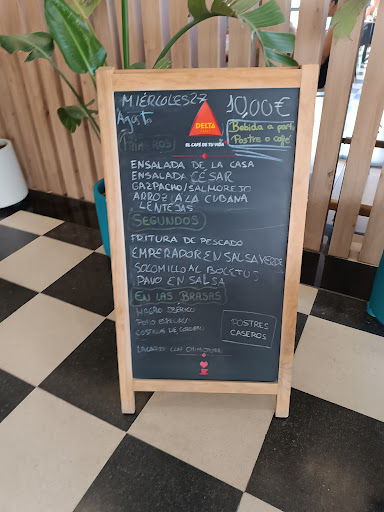 MIÉRCOLES 27
Agosto
10,00€
DELTA
CAFÉS
EL CAFÉ DE TU VIDA
Bebida a parte
Postre o café
PRIMEROS
ENSALADA DE LA CASA
ENSALADA CÉSAR
GAZPACHO/SALMOREJO
ARROZ A LA CUBANA
LENTEJAS
SEGUNDOS
FRITURA DE PESCADO
EMPERADOR EN SALSA VERDE
SOLOMILLO AL BOLETUS
PAVO EN SALSA
EN LAS BRASAS
MAGRO IBÉRICO
POLLO
COSTILLAS DE CORDERO
POSTRES
CASEROS
CON CHIMICHURRI